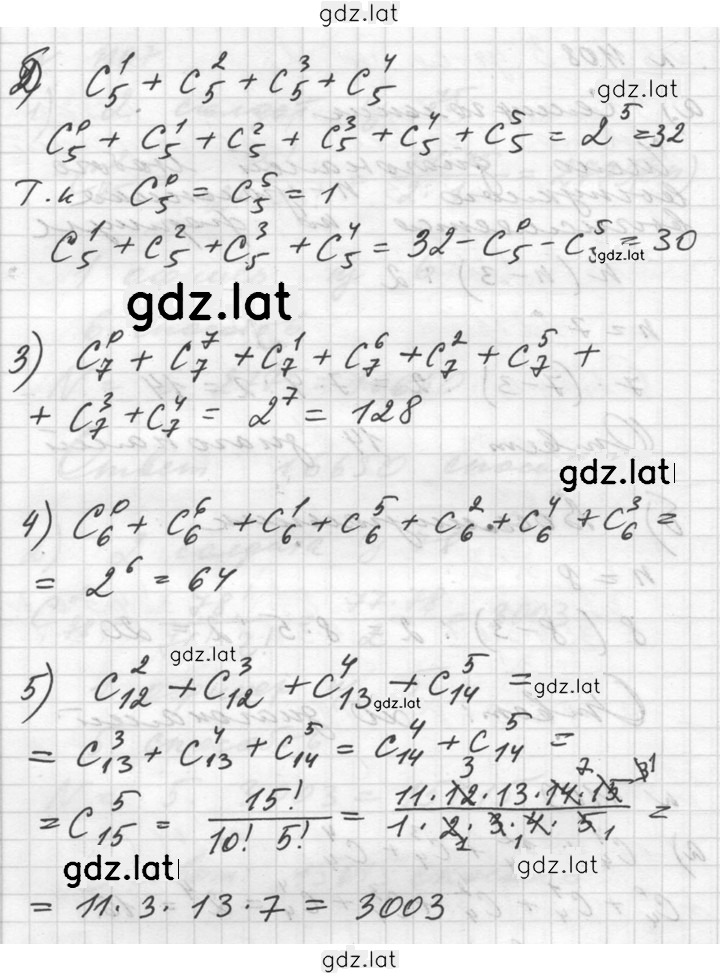 gdz.lat
2) C₅¹ + C₅² + C₅³ + C₅⁴
gdz.lat
C₅⁰ + C₅¹ + C₅² + C₅³ + C₅⁴ + C₅⁵ = 2⁵ = 32
Т.к C₅⁰ = C₅⁵ = 1
C₅¹ + C₅² + C₅³ + C₅⁴ = 32 - C₅⁰ - C₅⁵ = 30
gdz.lat
gdz.lat
3) C₇⁰ + C₇⁷ + C₇¹ + C₇⁶ + C₇² + C₇⁵ +
+ C₇³ + C₇⁴ = 2⁷ = 128
gdz.lat
4) C₆⁰ + C₆⁶ + C₆¹ + C₆⁵ + C₆² + C₆⁴ + C₆³ =
= 2⁶ = 64
gdz.lat
5) C₁₂² + C₁₂³ + C₁₃⁴ + C₁₄⁵ =
gdz.lat
gdz.lat
= C₁₃³ + C₁₃⁴ + C₁₄⁵ = C₁₄⁴ + C₁₄⁵ =
= C₁₅⁵ = 15! / 10! 5! = 11·12·13·14·15 / 1·2·3·4·5 =
gdz.lat
gdz.lat
= 11·3·13·7 = 3003
gdz.lat